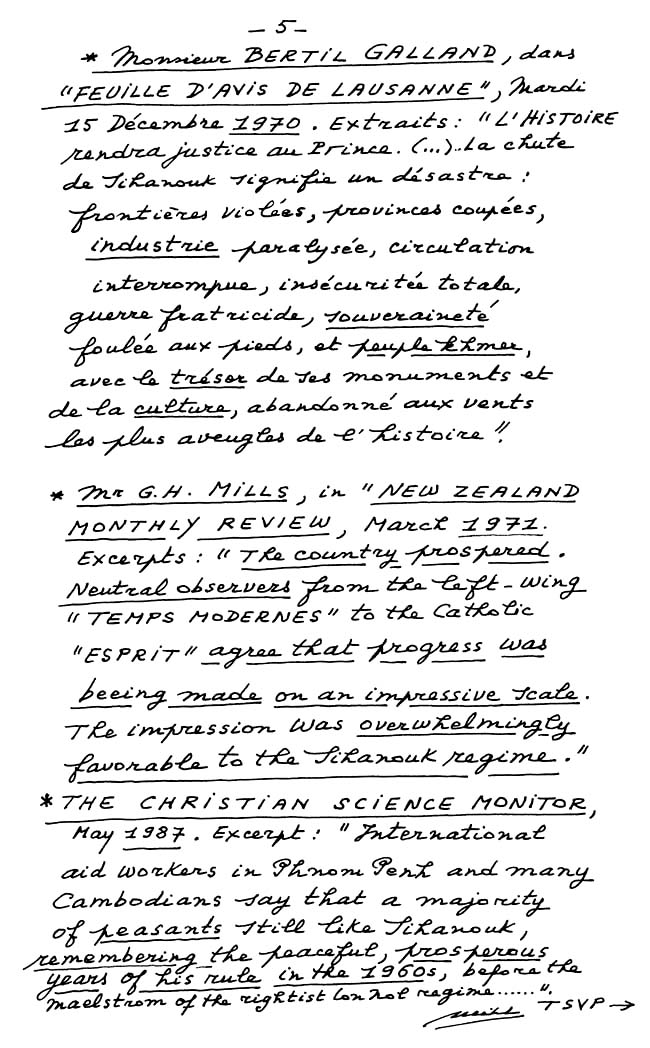 – 5 –
* Monsieur BERTIL GALLAND, dans
"FEUILLE D'AVIS DE LAUSANNE", Mardi
15 Décembre 1970. Extraits : "L'HISTOIRE
rendra justice au Prince. (...)..La chute
de Sihanouk signifie un désastre :
frontières violées, provinces coupées,
industrie paralysée, circulation
interrompue, insécuritée totale,
guerre fratricide, souveraineté
foulée aux pieds, et peuple khmer,
avec le trésor de ses monuments et
de la culture, abandonné aux vents
les plus aveugles de l'histoire".
* Mr G.H. MILLS, in "NEW ZEALAND
MONTHLY REVIEW, March 1971.
Excerpts : "The country prospered.
Neutral observers from the left-wing
"TEMPS MODERNES" to the Catholic
"ESPRIT" agree that progress was
beeing made on an impressive scale.
The impression was overwhelmingly
favorable to the Sihanouk regime."
* THE CHRISTIAN SCIENCE MONITOR,
May 1987. Excerpt : "International
aid workers in Phnom Penh and many
Cambodians say that a majority
of peasants still like Sihanouk,
remembering the peaceful, prosperous
years of his rule in the 1960s, before the
maelstrom of the rightist Lon Nol regime......".
TSVP →